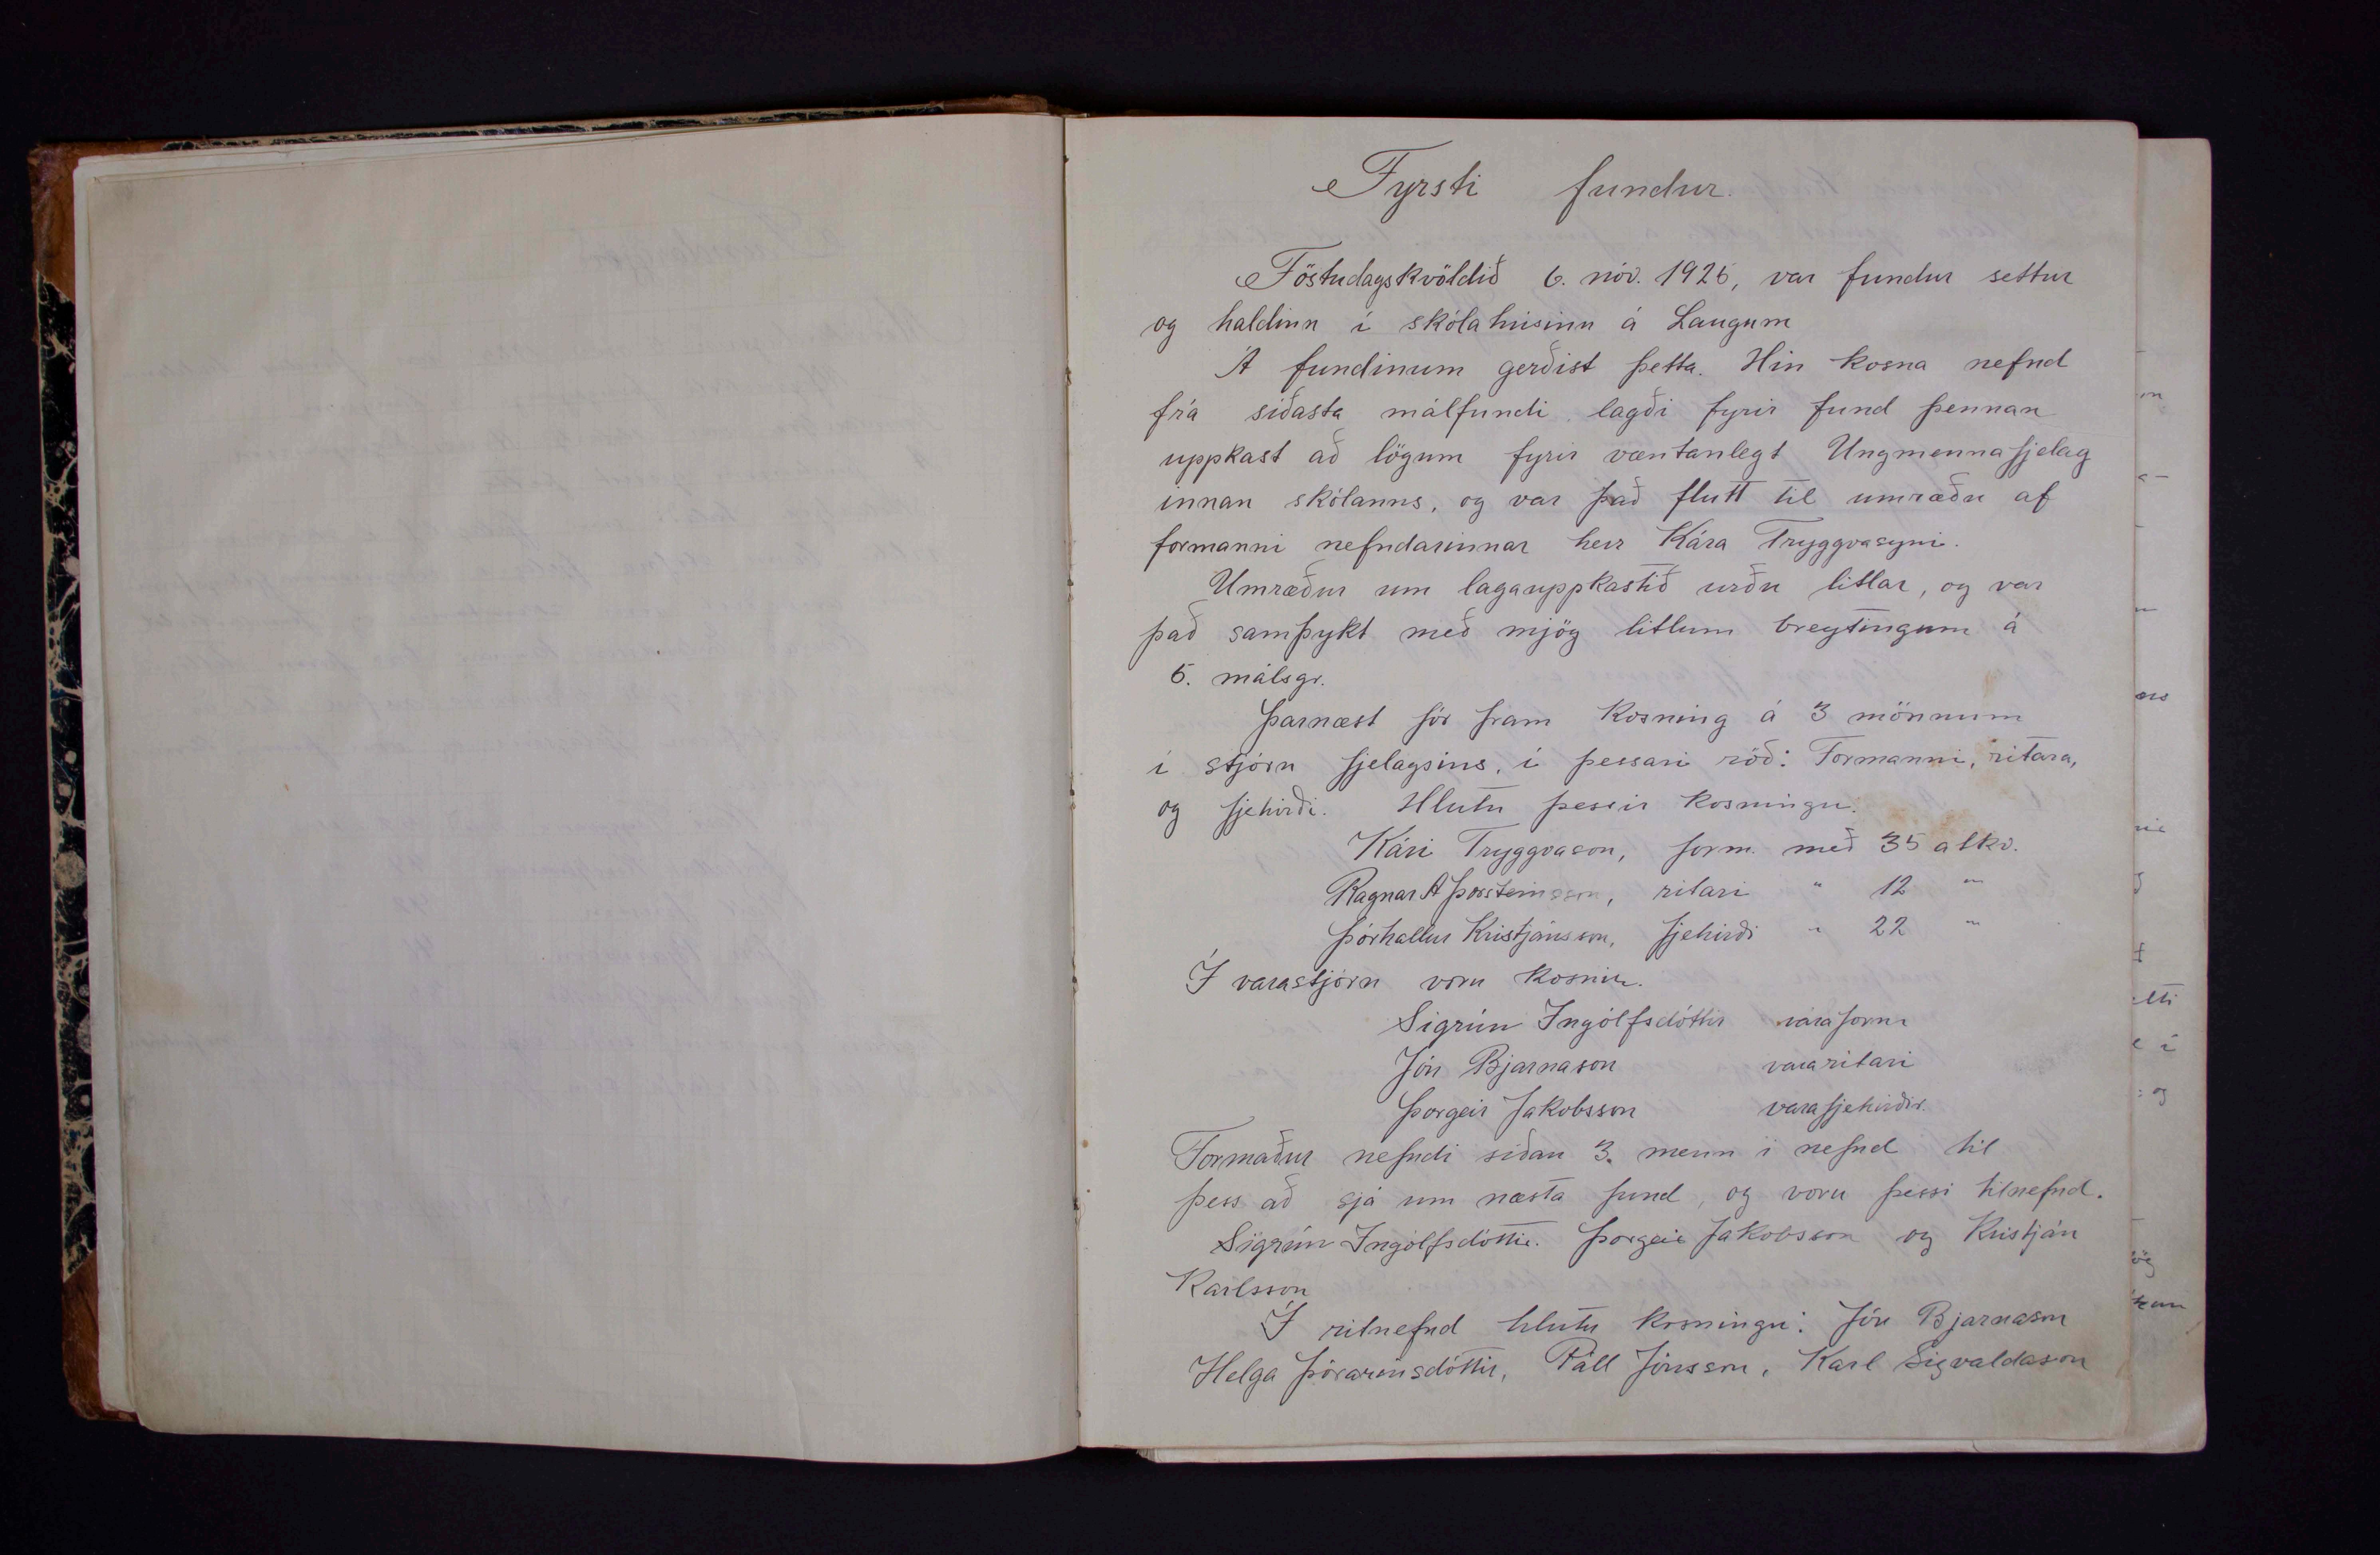 Fyrsti fundur.
Föstudagskvöldið 6. nóv. 1925, var fundur settur
og haldinn í skólahúsinu á Laugum
Á fundinum gerðist þetta. Hin kosna nefnd
frá síðasta málfundi lagði fyrir fund þennan
uppkast að lögum fyrir væntanlegt Ungmennafjelag
innan skólanns, og var það flutt til umræðu af
formanni nefndarinnar herr Kára Tryggvasyni.
Umræður um lagauppkastið urðu litlar, og var
það samþykt með mjög litlum breytingum á
5. málsgr.
Þarnæst fór fram kosning á 3 mönnum
í stjórn fjelagsins, í þessari röð: Formanni, ritara,
og fjehirði. Hlutu þessir kosningu.
Kári Tryggvason, form. með 35 atkv.
Ragnar A Þorsteinsson, ritari " 12 "
Þórhallur Kristjánsson, fjehirði " 22 "
Í varastjórn voru kosnir.
Sigrún Ingólfsdóttir varaform
Jón Bjarnason vararitari
Þorgeir Jakobsson varafjehirðir.
Formaður nefndi síðan 3. menn í nefnd til
þess að sjá um næsta fund, og voru þessi tilnefnd.
Sigrún Ingólfsdóttir. Þorgeir Jakobsson og Kristján
Karlsson
Í ritnefnd hlutu kosningu: Jón Bjarnason
Helga Þórarinsdóttir, Páll Jónsson, Karl Sigvaldason